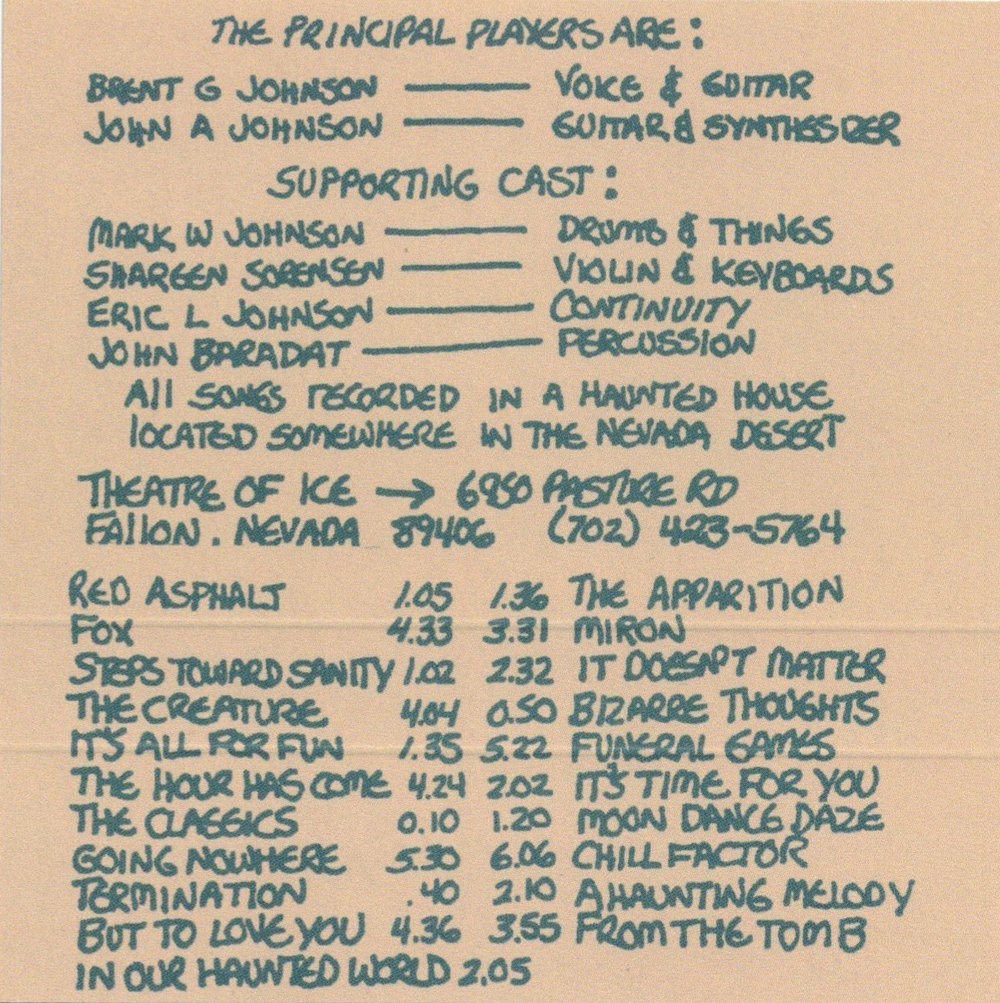 THE PRINCIPAL PLAYERS ARE:
BRENT G JOHNSON — VOICE & GUITAR
JOHN A JOHNSON — GUITAR & SYNTHESIZER
SUPPORTING CAST:
MARK W JOHNSON — DRUMS & THINGS
SHAREEN SORENSEN — VIOLIN & KEYBOARDS
ERIC L JOHNSON — CONTINUITY
JOHN BARADAT — PERCUSSION
All SONGS RECORDED IN A HAUNTED HOUSE
lOCATED SOMEWHERE IN THE NEVADA DESERT
THEATRE OF ICE → 6980 PASTURE RD
FAllON. NEVADA 89406 (702) 423-5764
RED ASPHALT 1.05 1.36 THE APPARITION
FOX 4.33 3.31 MIRON
STEPS TOWARD SANITY 1.02 2.32 IT DOESN'T MATTER
THE CREATURE 4.04 0.50 BIZARRE THOUGHTS
IT'S ALL FOR FUN 1.35 5.22 FUNERAL GAMES
THE HOUR HAS COME 4.24 2.02 IT'S TIME FOR YOU
THE CLASSICS 0.10 1.20 MOON DANCE DAZE
GOING NOWHERE 5.30 6.06 CHILL FACTOR
TERMINATION .40 2.10 A HAUNTING MELODY
BUT TO LOVE YOU 4.36 3.55 FROM THE TOMB
IN OUR HAUNTED WORLD 2.05